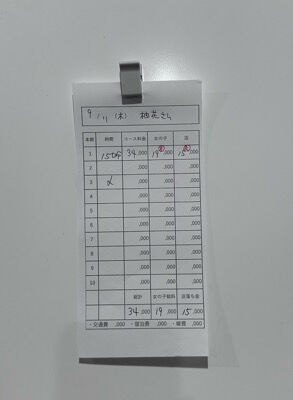 9/11 (木) 柚花さん
本数 時間 コース料金 女の子 店
1 150分 34,000 19,000 15,000
2 ,000 ,000 ,000
3 ,000 ,000 ,000
4 ,000 ,000 ,000
5 ,000 ,000 ,000
6 ,000 ,000 ,000
7 ,000 ,000 ,000
8 ,000 ,000 ,000
9 ,000 ,000 ,000
10 ,000 ,000 ,000
総計 女の子給料 店落ち金
34,000 19,000 15,000
・交通費 ,000 ・宿泊費 ,000 ・雑費 ,000